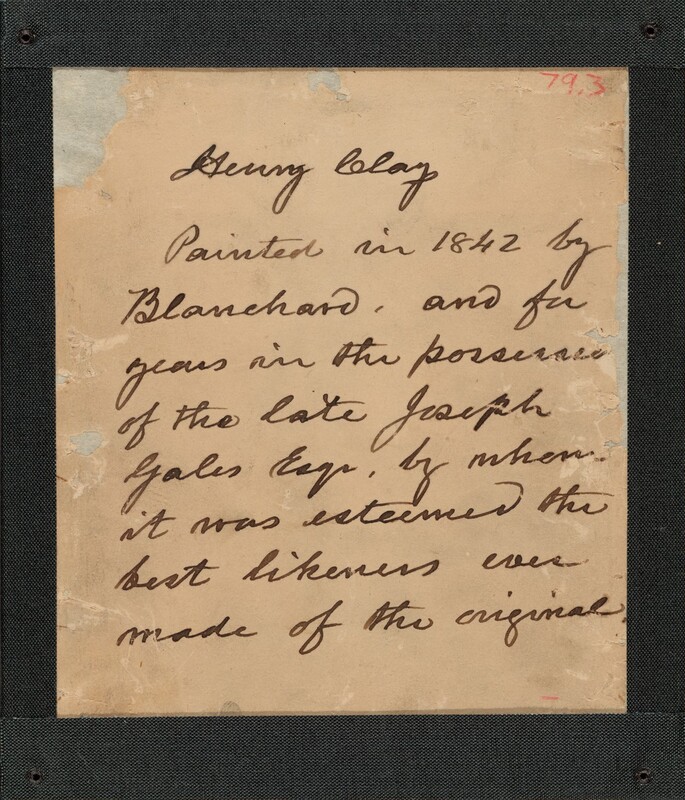 79.3
Henry Clay
Painted in 1842 by
Blanchard. and for
years in the possession
of the late Joseph
Gales Esqr, by whom
it was esteemed the
best likeness ever
made of the original.